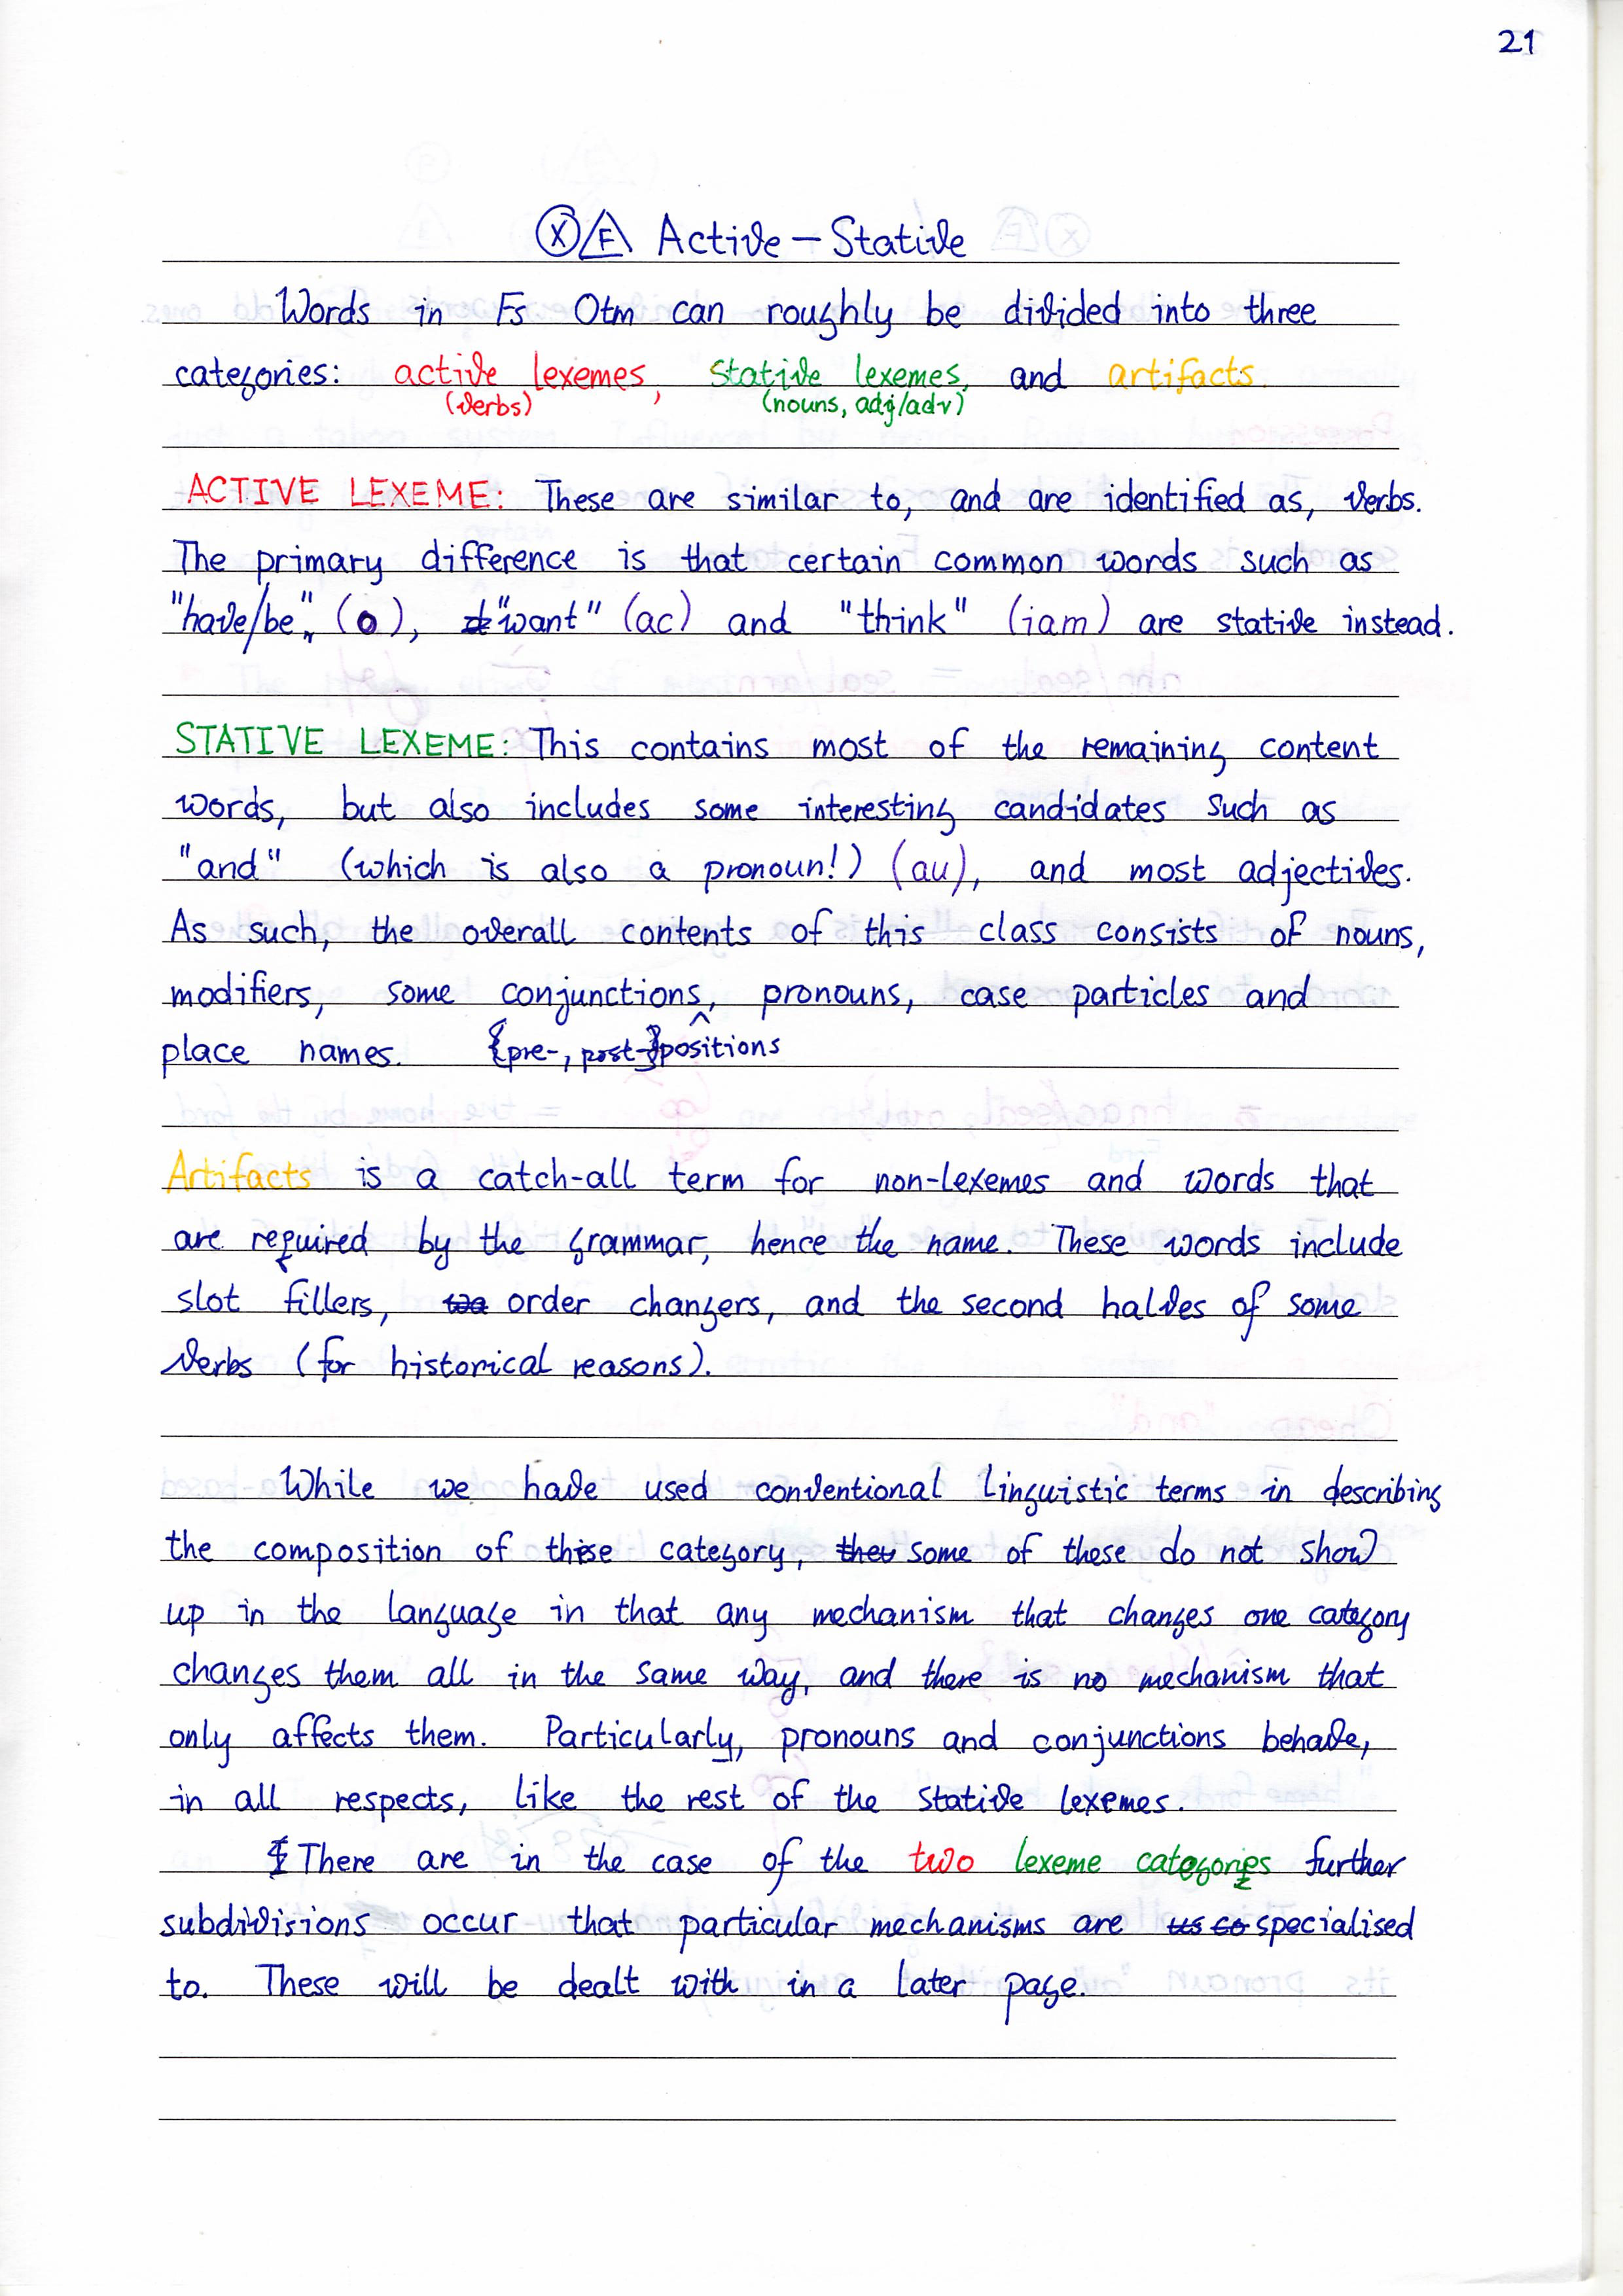 21
Ⓧ F Active – Stative
Words in Fs Otm can roughly be divided into three
categories: active lexemes, stative lexemes, and artifacts.
(verbs) (nouns, adj/adv)
ACTIVE LEXEME: These are similar to, and are identified as, verbs.
The primary difference is that certain common words such as
"have/be" (o), "want" (ac) and "think" (iam) are stative instead.
STATIVE LEXEME: This contains most of the remaining content
words, but also includes some interesting candidates such as
"and" (which is also a pronoun!) (au), and most adjectives.
As such, the overall contents of this class consists of nouns,
modifiers, some conjunctions, pronouns, case particles and
place names. {pre-, post-}positions
Artifacts is a catch-all term for non-lexemes and words that
are required by the grammar, hence the name. These words include
slot fillers, order changers, and the second halves of some
verbs (for historical reasons).
While we have used conventional linguistic terms in describing
the composition of these category, some of these do not show
up in the language in that any mechanism that changes one category
changes them all in the same way, and there is no mechanism that
only affects them. Particularly, pronouns and conjunctions behave,
in all respects, like the rest of the stative lexemes.
There are in the case of the two lexeme categories further
subdivisions occur that particular mechanisms are specialised
to. These will be dealt with in a later page.